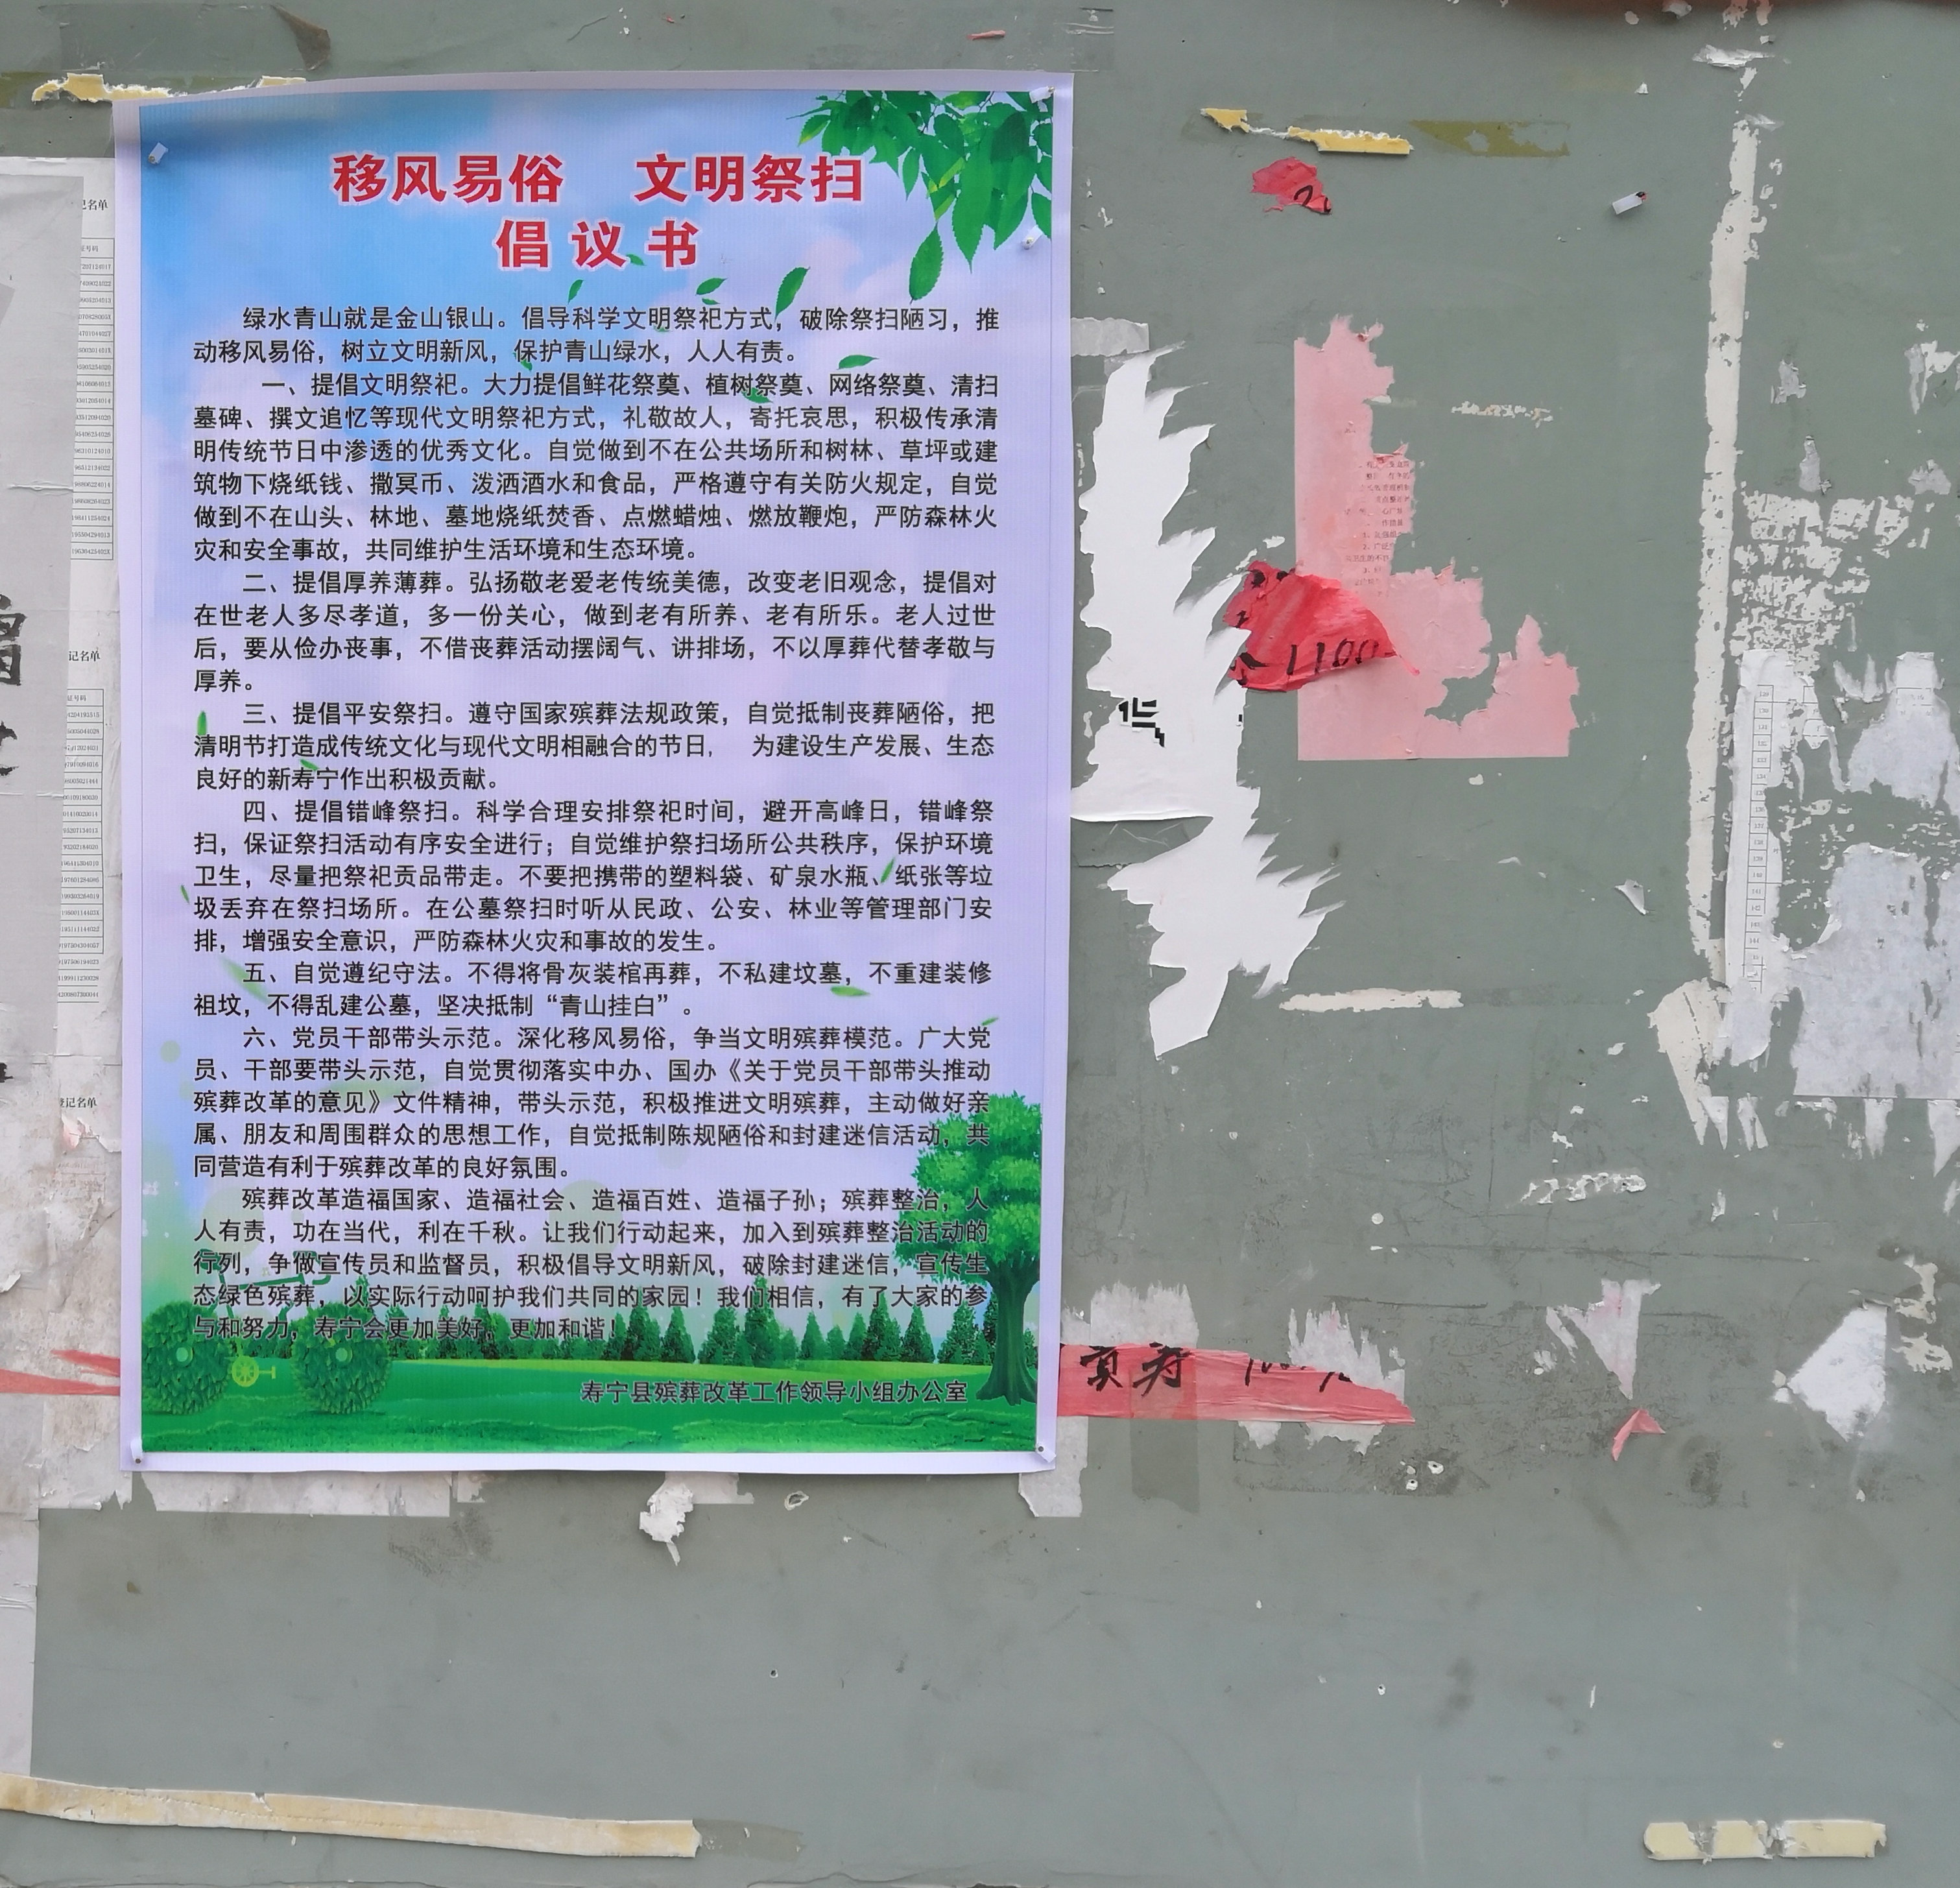 移风易俗 文明祭扫
倡议书
绿水青山就是金山银山。倡导科学文明祭祀方式，破除祭扫陋习，推
动移风易俗，树立文明新风，保护青山绿水，人人有责。
一、提倡文明祭祀。大力提倡鲜花祭奠、植树祭奠、网络祭奠、清扫
墓碑、撰文追忆等现代文明祭祀方式，礼敬故人，寄托哀思，积极传承清
明传统节日中渗透的优秀文化。自觉做到不在公共场所和树林、草坪或建
筑物下烧纸钱、撒冥币、泼洒酒水和食品，严格遵守有关防火规定，自觉
做到不在山头、林地、墓地烧纸焚香、点燃蜡烛、燃放鞭炮，严防森林火
灾和安全事故，共同维护生活环境和生态环境。
二、提倡厚养薄葬。弘扬敬老爱老传统美德，改变老旧观念，提倡对
在世老人多尽孝道，多一份关心，做到老有所养、老有所乐。老人过世
后，要从俭办丧事，不借丧葬活动摆阔气、讲排场，不以厚葬代替孝敬与
厚养。
三、提倡平安祭扫。遵守国家殡葬法规政策，自觉抵制丧葬陋俗，把
清明节打造成传统文化与现代文明相融合的节日， 为建设生产发展、生态
良好的新寿宁作出积极贡献。
四、提倡错峰祭扫。科学合理安排祭祀时间，避开高峰日，错峰祭
扫，保证祭扫活动有序安全进行；自觉维护祭扫场所公共秩序，保护环境
卫生，尽量把祭祀贡品带走。不要把携带的塑料袋、矿泉水瓶、纸张等垃
圾丢弃在祭扫场所。在公墓祭扫时听从民政、公安、林业等管理部门安
排，增强安全意识，严防森林火灾和事故的发生。
五、自觉遵纪守法。不得将骨灰装棺再葬，不私建坟墓，不重建装修
祖坟，不得乱建公墓，坚决抵制“青山挂白”。
六、党员干部带头示范。深化移风易俗，争当文明殡葬模范。广大党
员、干部要带头示范，自觉贯彻落实中办、国办《关于党员干部带头推动
殡葬改革的意见》文件精神，带头示范，积极推进文明殡葬，主动做好亲
属、朋友和周围群众的思想工作，自觉抵制陈规陋俗和封建迷信活动，共
同营造有利于殡葬改革的良好氛围。
殡葬改革造福国家、造福社会、造福百姓、造福子孙；殡葬整治，人
人有责，功在当代，利在千秋。让我们行动起来，加入到殡葬整治活动的
行列，争做宣传员和监督员，积极倡导文明新风，破除封建迷信，宣传生
态绿色殡葬，以实际行动呵护我们共同的家园！我们相信，有了大家的参
与和努力，寿宁会更加美好，更加和谐！
寿宁县殡葬改革工作领导小组办公室
记名单
记名单
登记名单
1100